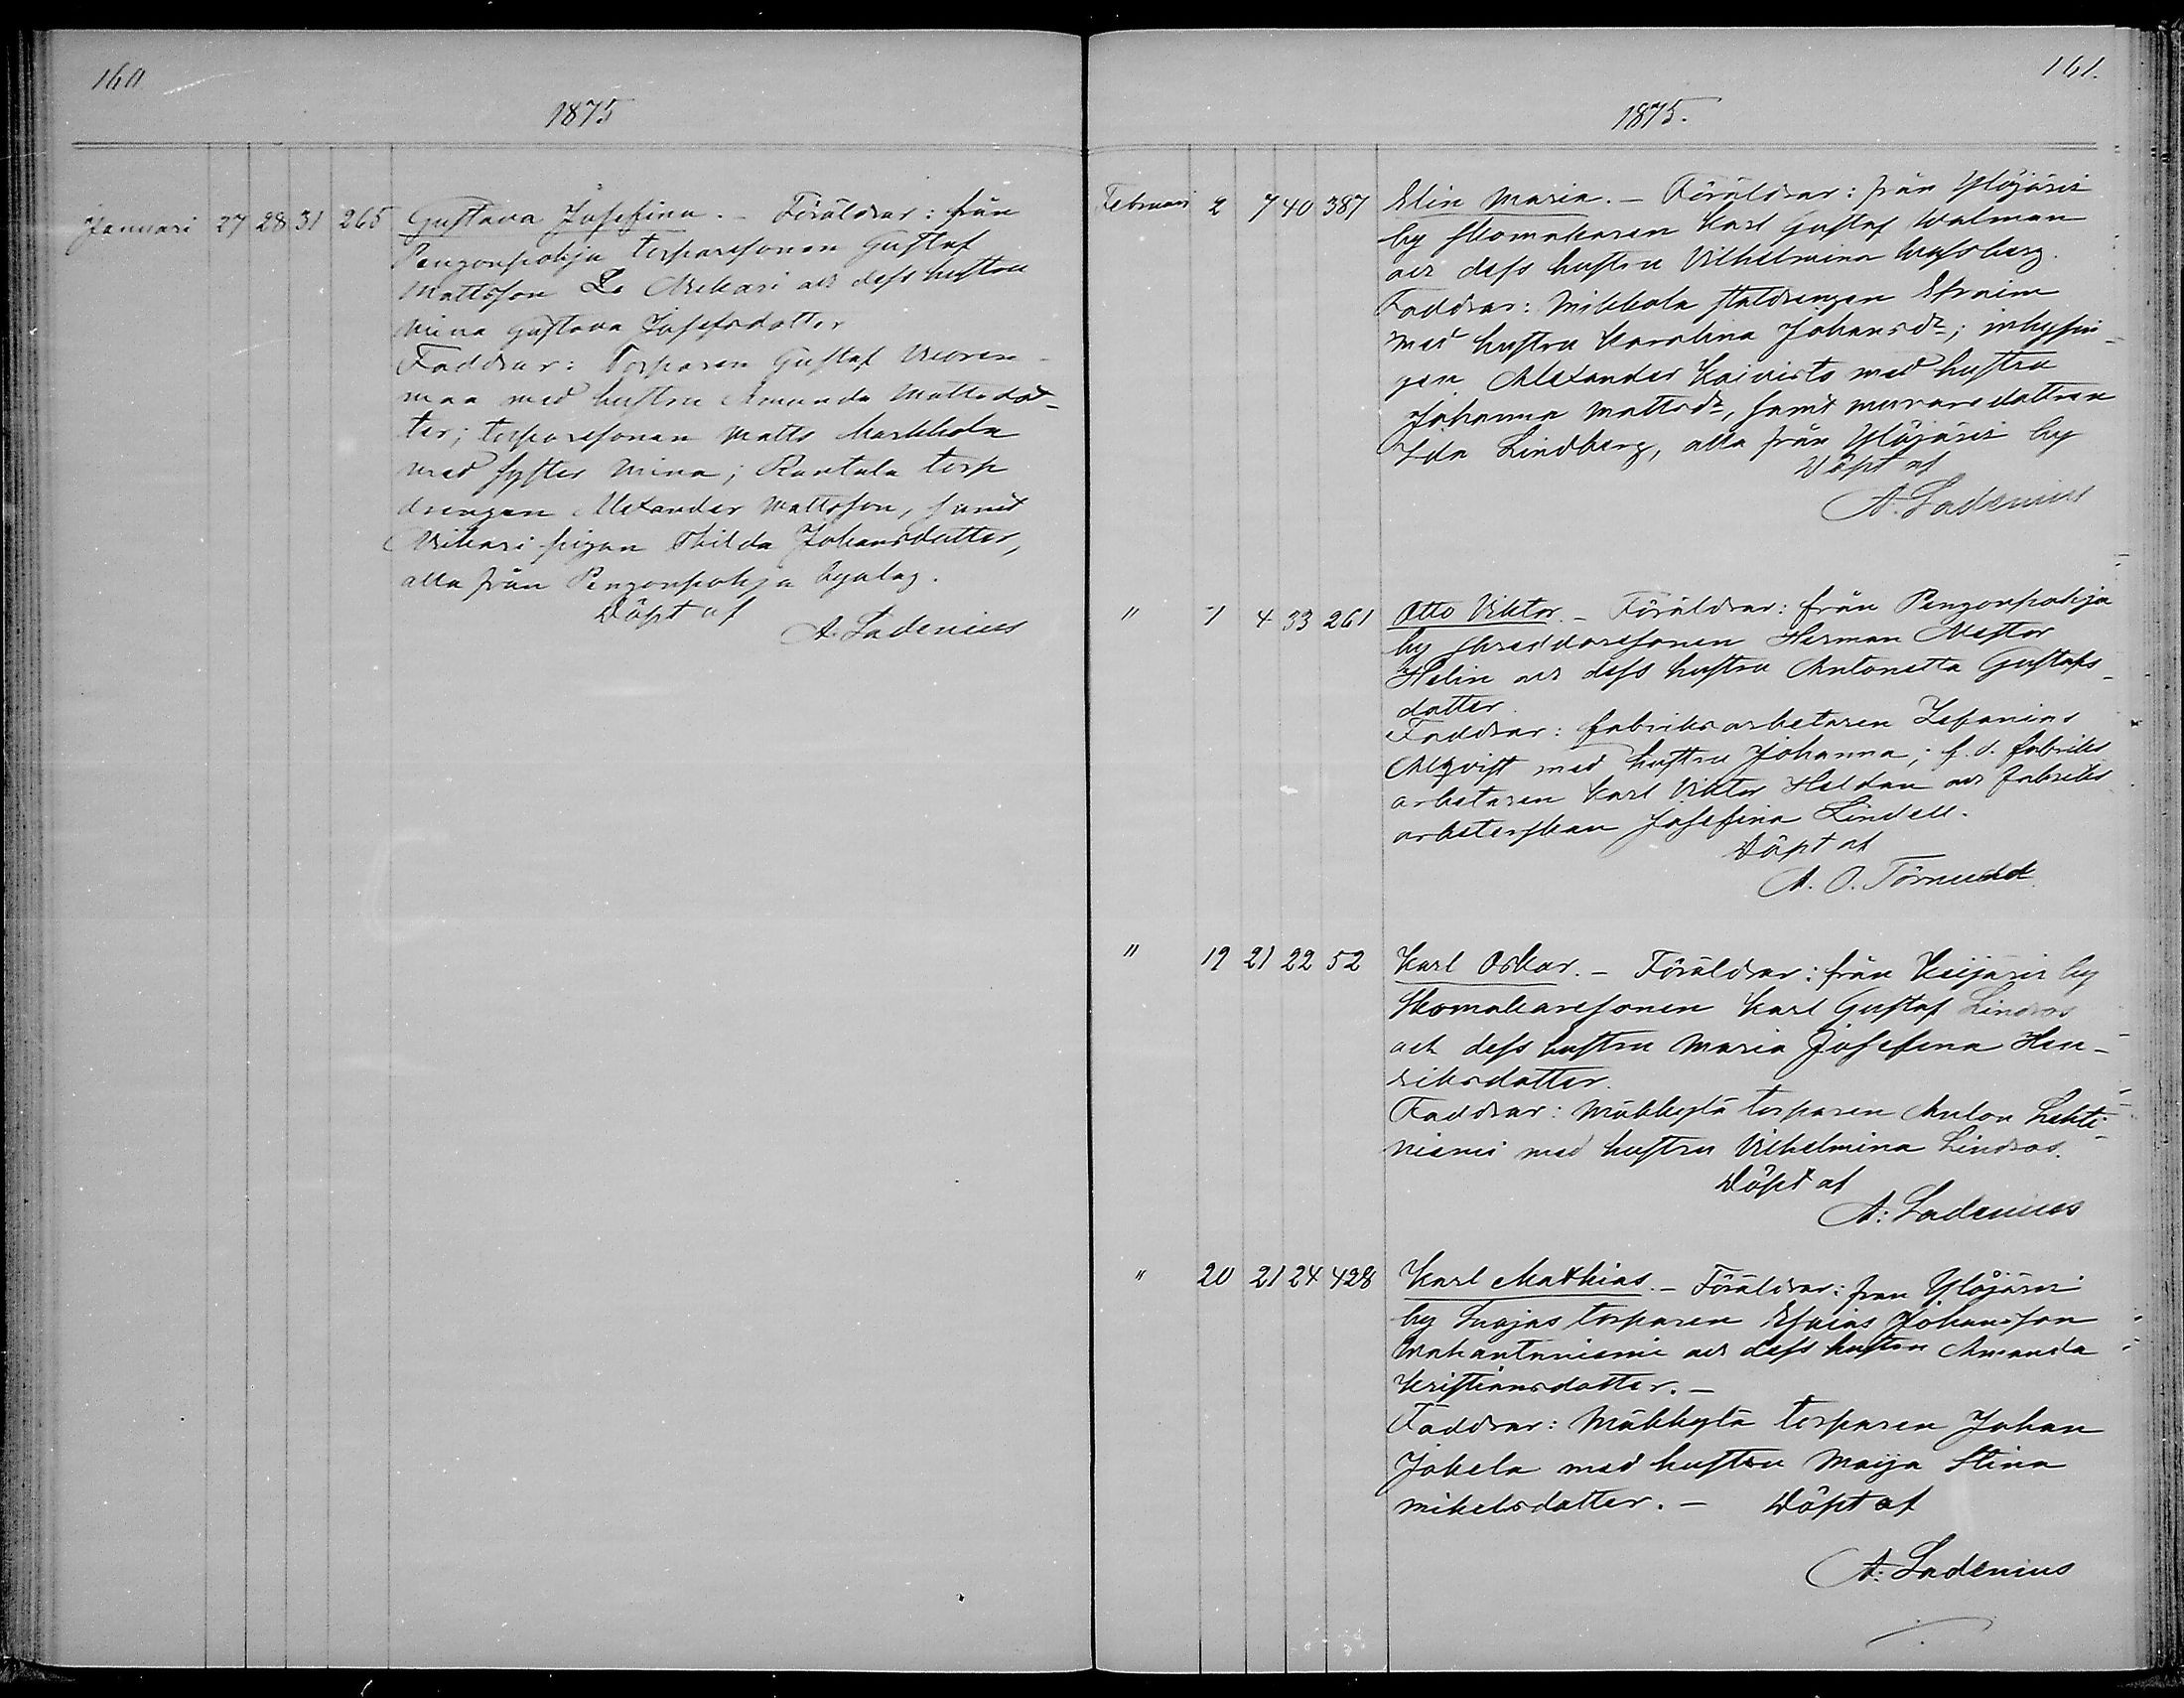 160
1875
Januari 27 28 31 265 Gustava Josefina. - Föräldrar: från
Pengonpohja torparesonen Gustaf
Mattsson Mikari och dess hustru
Mina Gustava Josefsdotter
Faddrar: Torparen Gustaf Vuoren-
maa med hustru Amanda Mattsdot-
ter; torparesonen Matts Markkola
med syster Mina; Rantala torp
drengen Alexander Mattsson, samt
Mikari pigan Thilda Johansdotter,
alla från Pengonpohja byalag.
Döpt af
A. Ladenius
161.
1875.
Februari 2 7 40 387 Elin Maria. - Föräldrar: från Ylöjärvi
by skomakaren Karl Gustaf Walman
och dess hustru Vilhelmina
Faddrar: Mikkola staldrengen Efraim
med hustru Karolina Johansdr; inhysin-
gen Alexander Koivisto med hustru
Johanna Mattsdr, samt muraredottren
Ida Lindberg, alla från Ylöjärvi by
Döpt af
A. Ladenius
" 1 4 33 261 Otto Viktor. - Föräldrar: från Pengonpohja
by skreddaresonen Herman Nestor
Helin och dess hustru Antonetta Gustafs-
dotter.
Faddrar: fabriksarbetaren Zefanias
Alqvist med hustru Johanna; f. d. fabriks
arbetaren Karl Viktor Heldan och fabriks
arbeterskan Josefina Lindell.
Döpt af
A. O. Törnudd
" 19 21 22 52 Karl Oskar. - Föräldrar: från Keijärvi by
Skomakaresonen Karl Gustaf Lindros
och dess hustru Maria Josefina Hen-
riksdotter.
Faddrar: Mäkkylä torparen Anton Lehti-
niemi med hustru Vilhelmina Lindros.
Döpt af
A. Ladenius
" 20 21 24 428 Karl Mathias. - Föräldrar: från Ylöjärvi
by torparen Esaias Johansson
och dess hustru Amanda
Kristiansdotter. -
Faddrar: Mäkkylä torparen Johan
Jokela med hustru Maija Stina
Mikelsdotter. - Döpt af
A. Ladenius